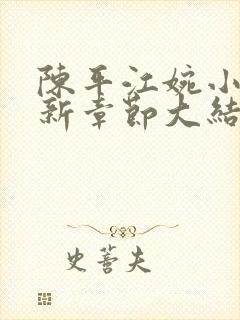 陳平江婉小
新章節大結
史蓍夫